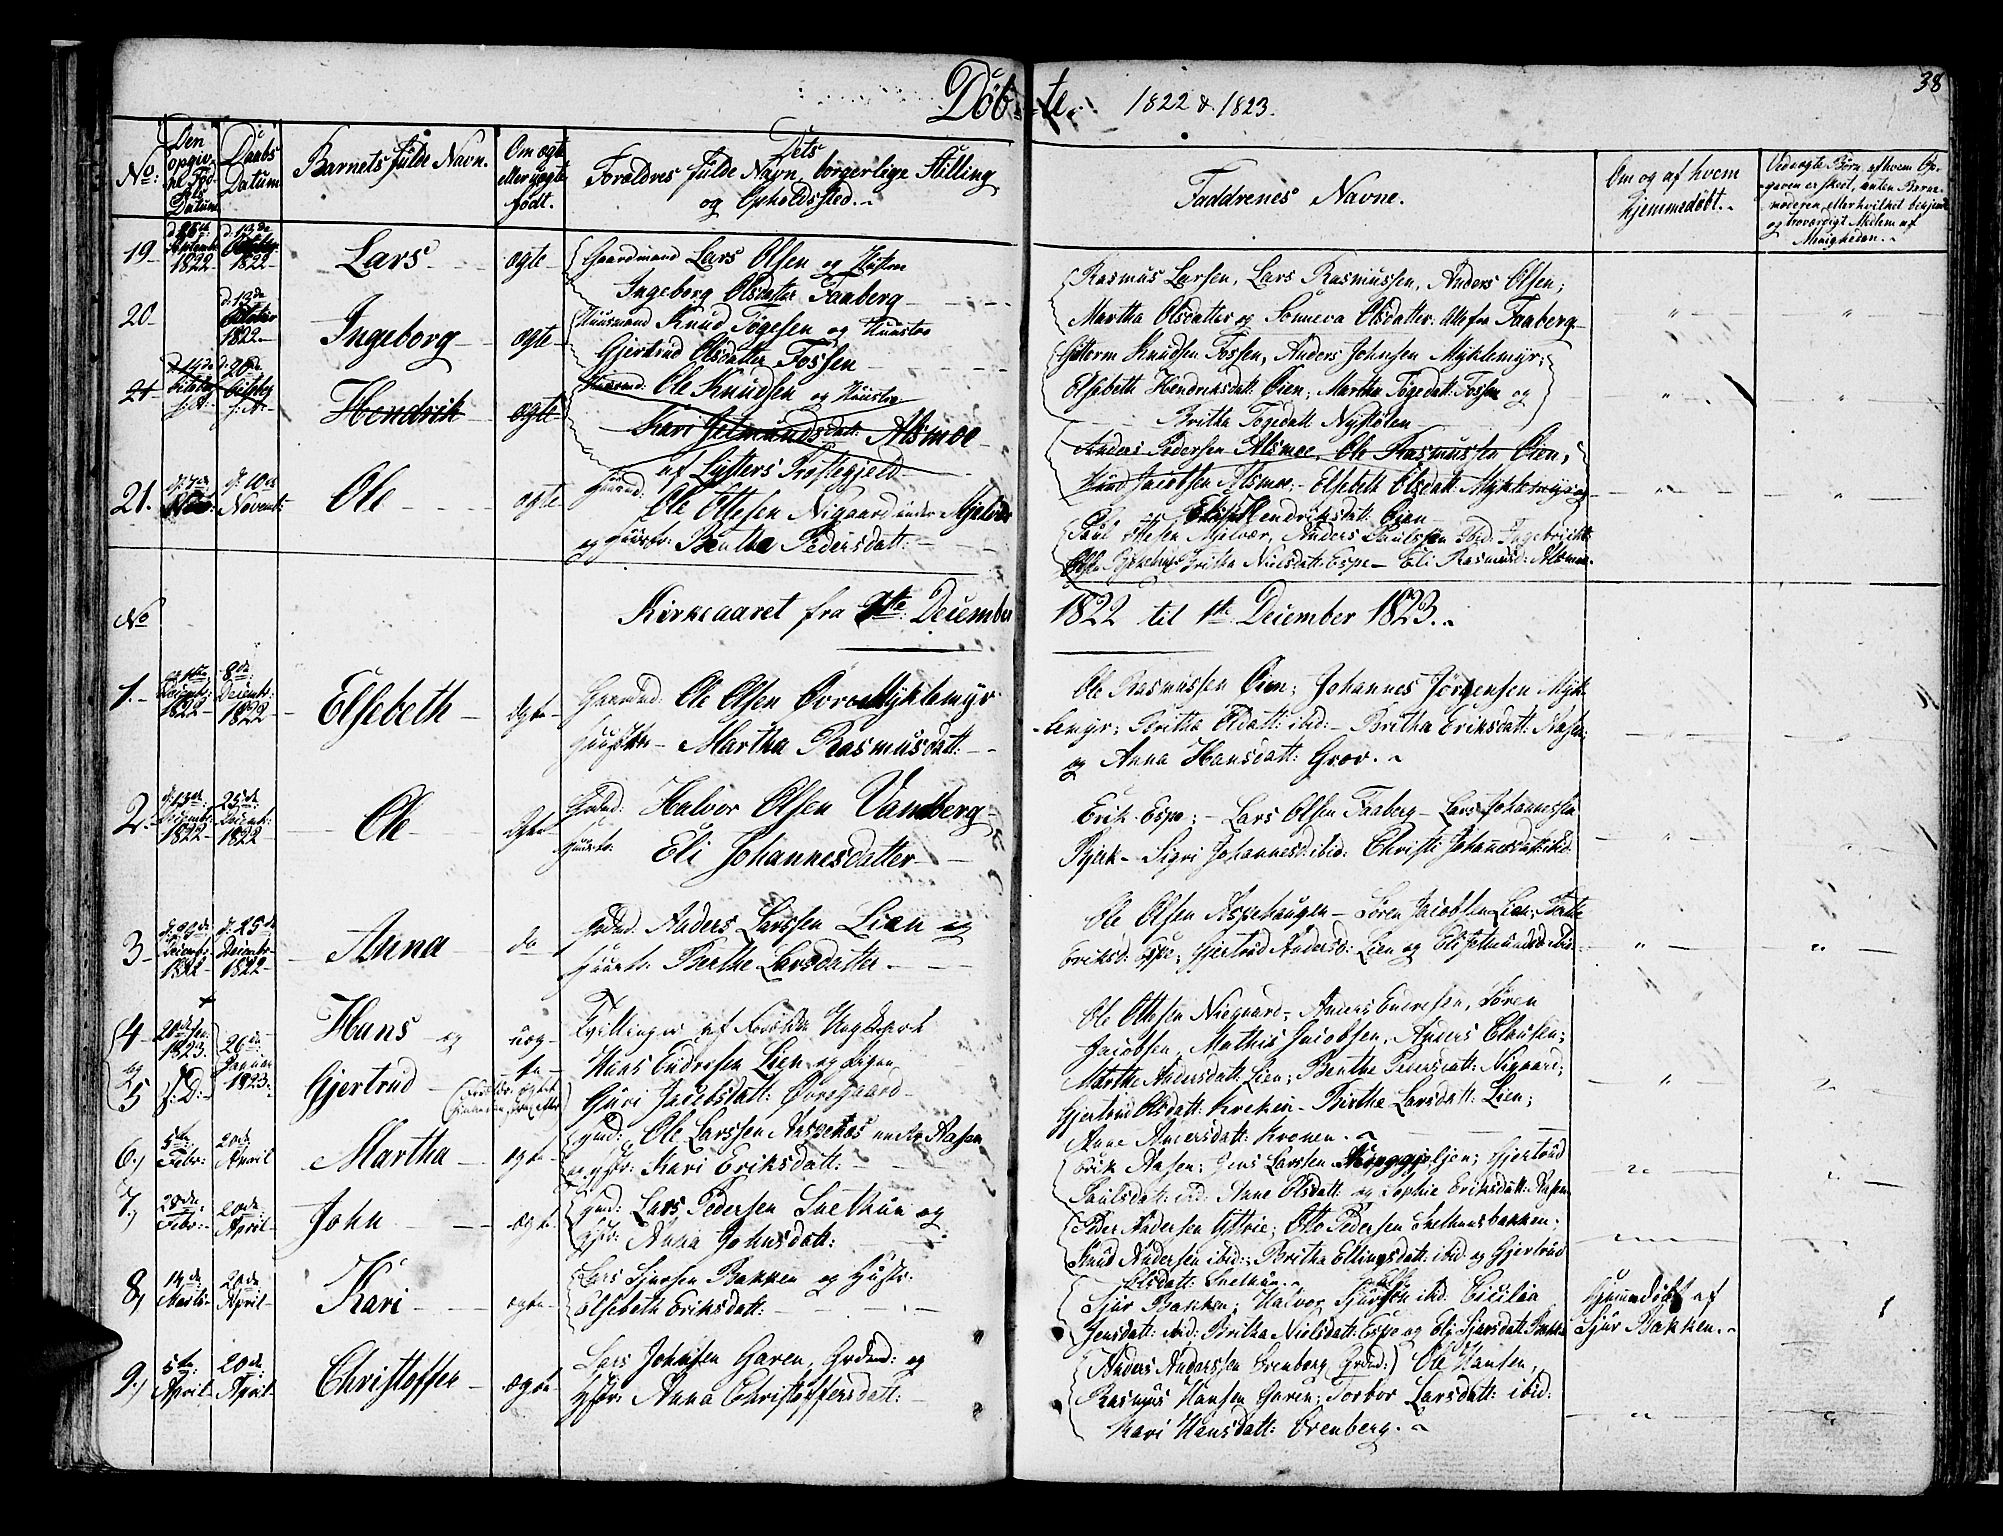 38
Döbte. 1822 & 1823.
No:
Den opgivne Födsels Datum
Daabs Datum
Barnets fulde Navn.
Om ægte eller uægte födt.
Dets Forældres fulde Navn, borgerlige Stilling og Opholdssted.
Faddrenes Navne.
Om og af hvem hjemmedöbt.
Ved uægte Börn, af hvem Opgaven er skeet, enten Barnemoderen eller hvilket bekjendt og troværdigt Medlem af Menigheden.
19 1822 d. 13de October 1822 Lars ægte Gaardmand Lars Olsen og Hustroe
Ingeborg Olsdatter Faaberg
Rasmus Larsen, Lars Rasmussen, Anders Olsen;
Martha Olsdatter og Sonneva Olsdatter. Alle fra Faaberg
20 d. 13de October 1822 Ingeborg ægte Huusmand Knud Tögesen og Huustroe
Gjertrud Olsdatter Fossen
Guttorm Knudsen Fossen, Anders Johnsen Myklemyr;
Elsebeth Hendriksdatt: Öien; Martha Tögedatt: Fossen og
Britha Togedatt Nystölen
21 Hendrik ægte Ole Knudsen og Huustroe
Kari Jetmundsdatt: Alsmoe
af Lysters Præstegjeld
Anders Pedersen Alsmoe, Ole Rasmussen Öien;
Knud Jacobsen Alsmoe, Elsebeth Olsdatt: Myklemyr og
Hendriksdatt: Öien
21. d. 10de Novemb: Ole ægte Ole Ottesen Nigaard under Mjelvær
og Huustr: Benthe Pedersdatt:
Paul Ottesen Mjelvær, Anders Paulsen ibid: Ingebrickt
Britha Nielsdatt: Espe - Eli Rasmusd: Alsmoe
No
Kirkeaaret fra 1ste December 1822 til 1ste December 1823.
1. 1ste Decemb: 1822 8de Decemb: 1822 Elsebeth ægte Gaardmd: Ole Olsen Övre Myklemyr
Huustro - Martha Rasmusdatt:
Ole Rasmussen Öien; Johannes Jörgensen Myk-
lemyr; Britha Oldatt: ibid: - Britha Eriksdatt: Aasen;
og Anna Hansdatt: Grov.
2. d: 13de Decemb: 1822 25de Decemb: 1822 Ole ægte Grdmd: Halvor Olsen Vamberg
Huustr: Eli Johannesdatter
Erik Espe; - Lars Olsen Faaberg - Lars Johannessen
Bjerk - Sigri Johannesd: ibid: Christi Johannesdatt: ibid.
3 Decemb: 1822 d: 25de Decemb: 1822 Anna do Grdmd: Anders Larssen Lien og
Huustr: Berthe Larsdatter.
Ole Olsen Aspehaugen - Sören Jacobsen Lien; Berthe
Eriksd: Espe; Gjertrud Andersd: Lien og Eli Jetmundsd: ibid:
4 og 5 20de Jan: 1823. 26de Januar 1823. Hans og
Gjertrud uægte
Tvillinger af Forældre Ungkarl
Hans Endresen Lien og Pigen
Guri Jacobsdatt: Övregaard
Ole Ottesen Niegaard, Anders Endresen, Sören
Jacobsen, Mathis Jacobsen, Anders Clausen;
Marthe Andersdatt: Lien; Benthe Pedersdatt: Nigaard;
Gjertrud Olsdatt: Kreken - Birthe Larsdatt: Lien;
Anne Andersdatt: Kronen.
6. 5te Febr: 20de April Martha ægte Gmd: Ole Larssen Aasenæs under Aasen
og Hstr: Kari Eriksdatt:
Erik Aasen; Jens Larssen; Gjertrud
Paulsdatt: ibid: Anne Olsdatt: og Sophie Eriksdatt: Aasen
7. 28de Febr: 20de April John ægte Gmd: Lars Pedersen Snethun og
Hstr: Anna Johnsdatt:
Peder Andersen; Ole Pedersen Snethunsbakken;
Knud Andersen ibid:; Britha Ellingsdatt: ibid og Gjertrud
Olsdatt: Snethun.
8. 20de April Kari ægte Lars Sjursen Bakken og Hustr:
Elsebeth Eriksdatt:
Sjur Bakken; Halvor Sjursen ibid. Cicilia
Jensdatt: ibid: Britha Nielsdatt: Espe og Eli Sjursdatt: Bakken
Hjemmedöbt af
Sjur Bakken.
9. 5te April 20de April Christoffer ægte Lars Johnsen Garen, Grdmd: og
Hstr: Anna Christoffersdatt:
Anders Anderssen Ormberg (Grdmd:) Ole Hansen,
Rasmus Hansen Garen; Torbor Larsdatt: ibid:
Kari Hansdatt: Ormberg.